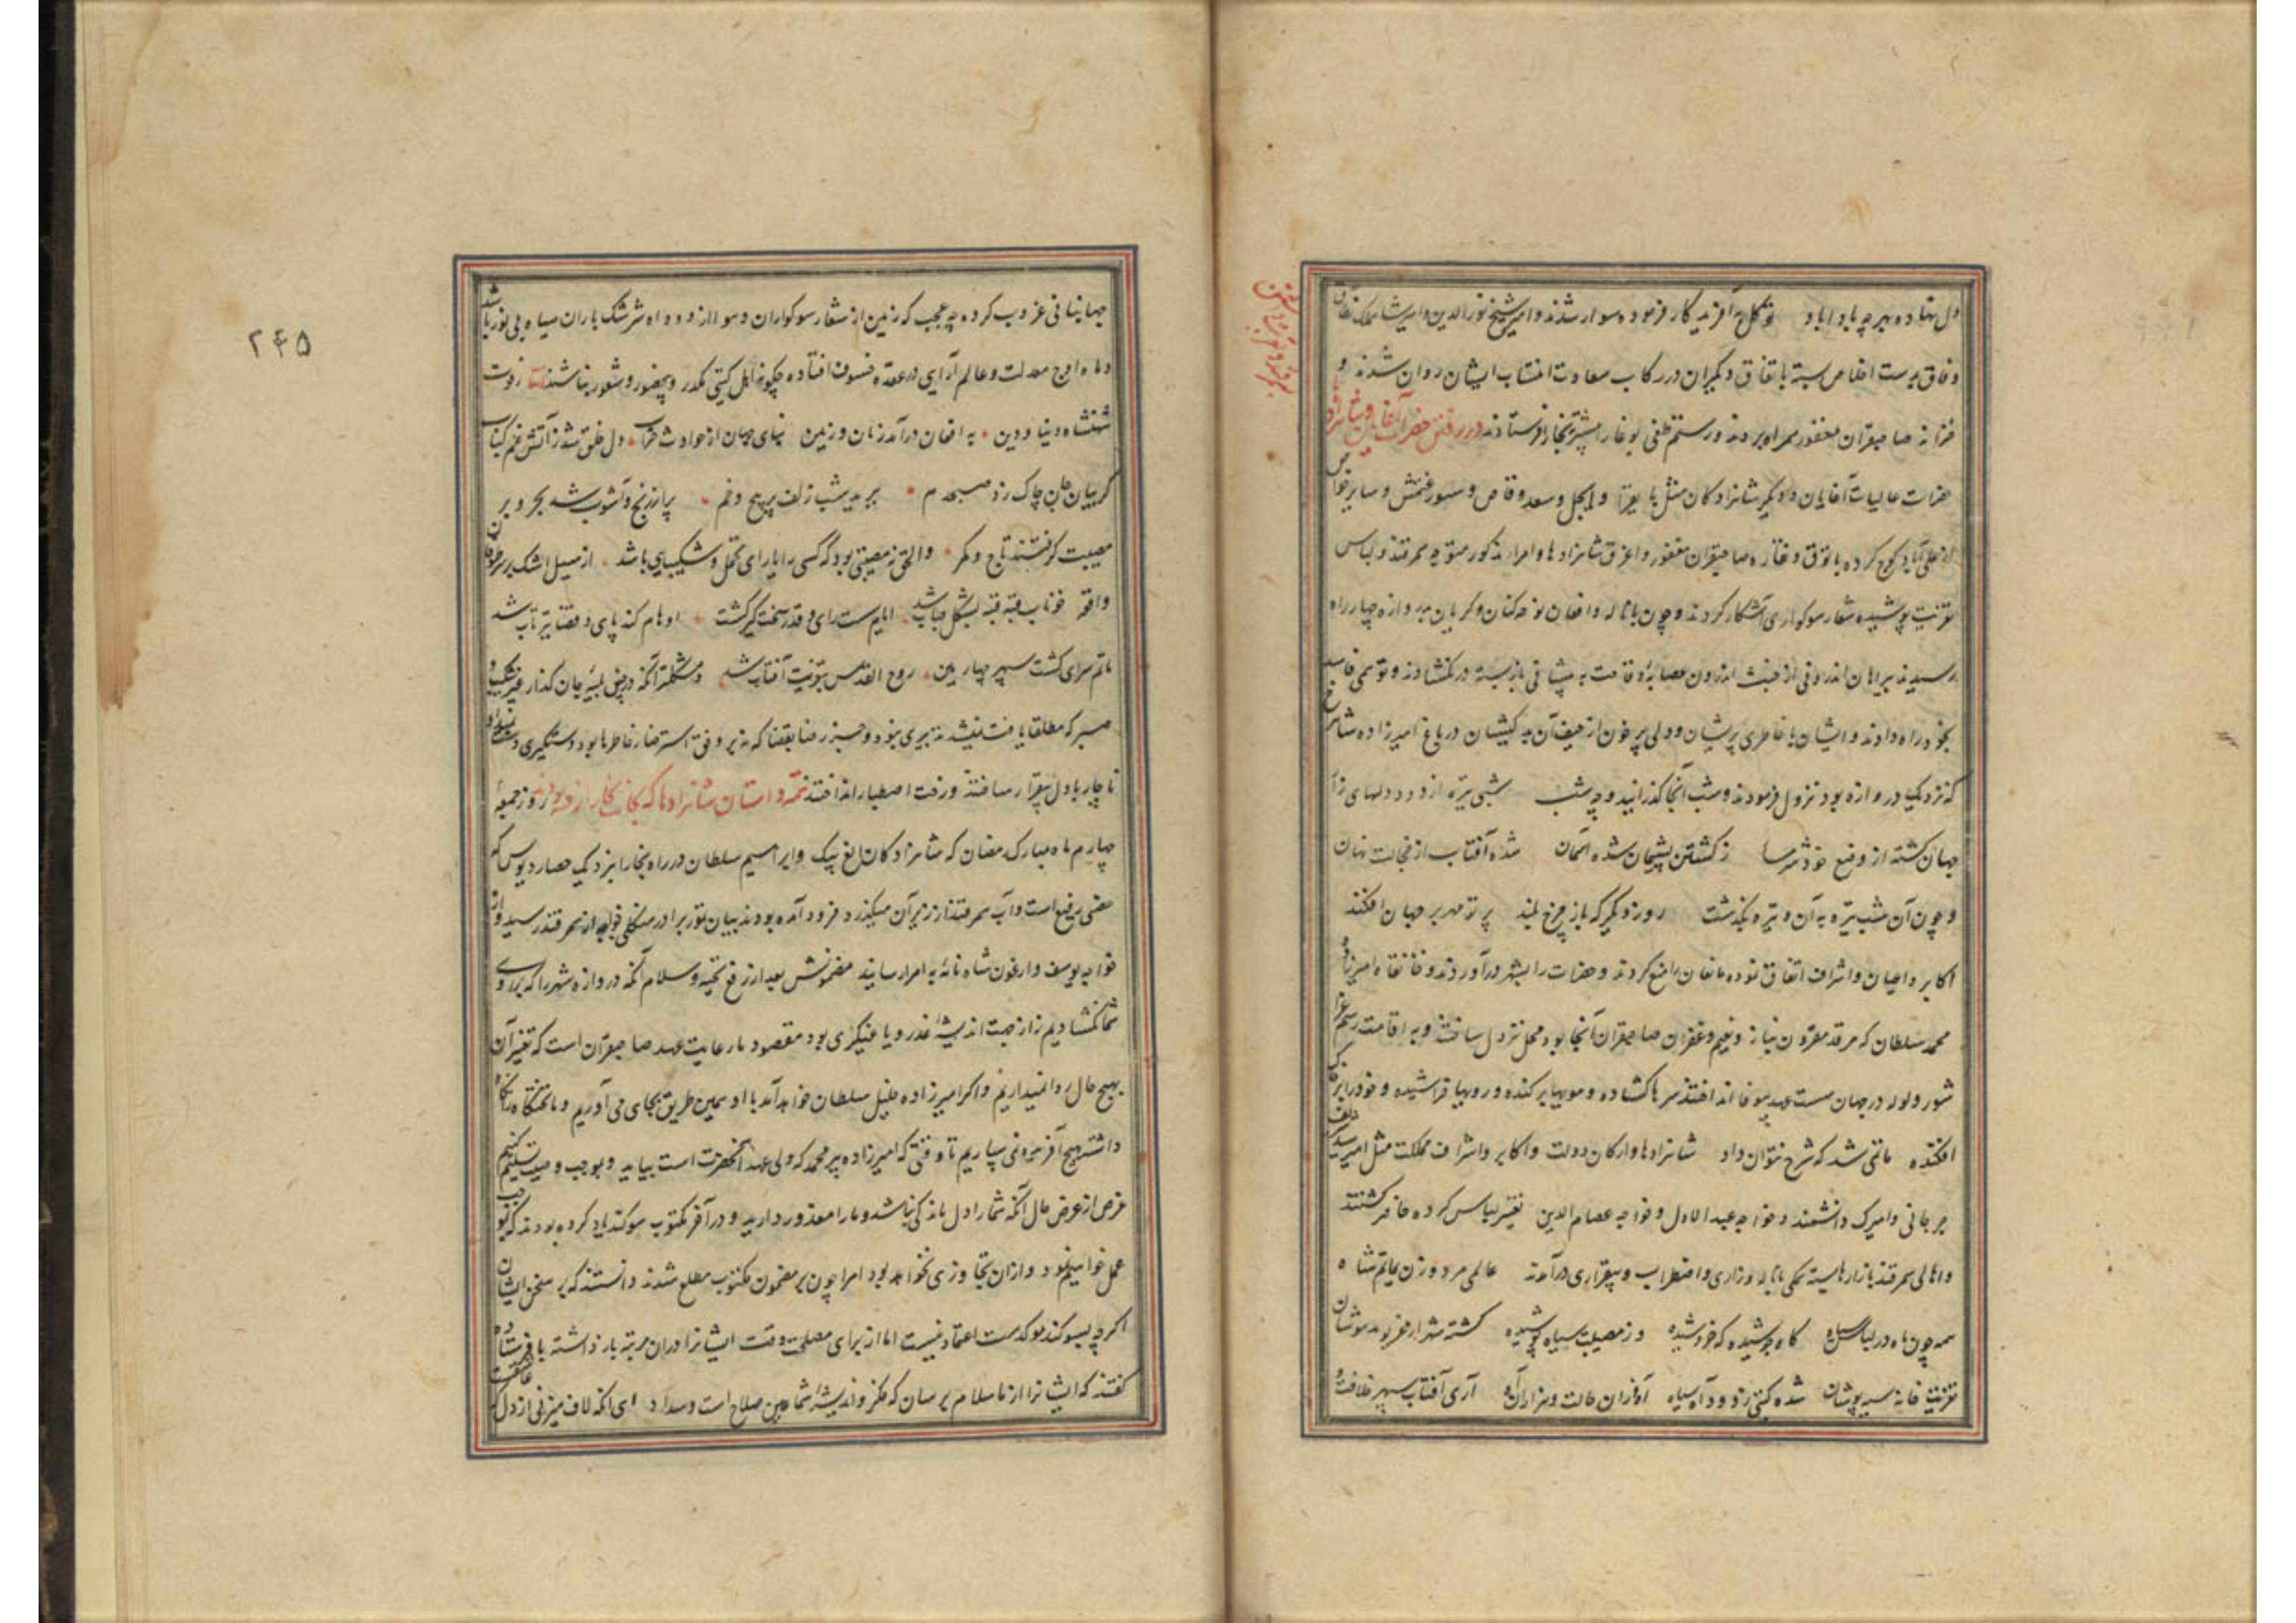 دل نهاده بهر چه بادا باد توکل به آفریدگار فرموده سوار شدند و امیر شیخ نورالدین و امیر شاهملک نطاق
وفاق بدست اخلاص بسته باتفاق دیگران در رکاب سعادت انتساب ایشان روان شدند و
خزانه صاحبقران مغفور همراه بردند و رستم طغی بوغا را پیشتر ببخارا فرستادند در رفتن حضرات آغایان و شاهزادگان
حضرات عالیات آغایان و دیگر شاهزادگان مثل بایقرا و ایجل و سعد وقاص و سیورغتمش و سایر خواص
از علی آباد کوچ کرده با توق و نقاره صاحبقران مغفور و اغرق شاهزادها و امرا مذکور متوجه سمرقند و لباس
تعزیت پوشیده شعار سوکواری آشکار کردند و چون با ناله و افغان نوحه کنان و گریان بدروازه چهارراه
رسیدند بیراهان اندرونی از خبث اندرون عصابه وقاحت به پیشانی باز بسته در نگشادند و توهمی فاسد
بخود راه دادند و ایشان با خاطری پریشان و دلی پر خون از حیف آن بدکیشان در باغ امیرزاده شاهرخ
که نزدیک دروازه بود نزول فرمودند و شب آنجا گذرانیدند و چه شب شبی تیره از دود دلهای زار
جهان گشته از وضع خود شرمسار ز گشتن پشیمان شده آسمان شده آفتاب از خجالت نهان
و چون آن شب تیره به آن وتیره بگذشت روز دیگر که باز چرخ بلند پرتو مهر بر جهان افکند
اکابر و اعیان و اشراف اتفاق نموده مانعان را منع کردند و حضرات را بشهر درآوردند و خانقاه امیرزاده
محمد سلطان که مرقد مقرون بناز و نعیم و غفران صاحبقران آنجا بود محل نزول ساختند و به اقامت رسم عزا
شور و ولوله در جهان سست عهد بیوفا انداختند سرها گشاده و مویها برکنده و رویها خراشیده و خود را بر خاک
افکنده ماتمی شد که شرح نتوان داد شاهزادها و ارکان دولت و اکابر و اشراف مملکت مثل امیر سید شریف
جرجانی و امیرک دانشمند و خواجه عبد الاول و خواجه عصام الدین تغییر لباس کرده حاضر گشتند
و اهالی سمرقند بازارها بسته همگی با ناله و زاری و اضطراب و بیقراری درآمدند عالمی مرد و زن بماتم شاه
همه چون ماه در لباس سیاه گاه جوشیده گه خروشیده وز مصیبت سیاه پوشیده گشته شهر از غریو مدهوشان
تعزیت خانه سیه پوشان شده گیتی ز دود آه سیاه آه ازان حالت و هزاران آه آری آفتاب سپهر خلافت و
۲۴۵
جهانبانی غروب کرده چه عجب که زمین از شعار سوکواران و هوا از دود آه و سرشک باران سیاه و بی نور باشد
و ماه اوج معدلت و عالم آرایی در عقده خسوف افتاده چگونه اهل گیتی مکدر و بیحضور و شعور نباشند ز فوت
شهنشاه دنیا و دین به افغان درآمد زمان و زمین بنای جهان از حوادث خراب دل خلق شد ز آتش غم کباب
گریبان جان چاک زد صبحدم ببرید شب زلف پر پیچ و خم پر از رنج و آشوب شد بحر و بر
مصیبت گرفتند تاج و کمر والحق نه مصیبتی بود که کسی را یارای تحمل و شکیبایی باشد از سیل اشک بر سر طوفان
واقعه خوناب قبه قبه بشکل حباب شد ایام سست رای و قدر سخت گیر گشت اوهام کند پای و قضا تیزتاب شد
ماتم سرای گشت سپهر چهارمین روح القدس بتعزیت آفتاب شد و مشکلتر آنکه در چنین بلیه جان گداز غیر شکیبا و
صبر که مطلقا یافت نمیشد تدبیری نبود و جز رضا بقضا که نه بر وفق استرضا خاطرها بود دستگیری دست نمیداد
ناچار با دل بیقرار ساختند و رخت اصطبار انداختند تتمه داستان شاهزادها که بجانب بخارا رفته بودند روز جمعه
چهارم ماه مبارک رمضان که شاهزادگان الغ بیک و ابراهیم سلطان در راه بخارا نزدیک حصار دبوس که
حصنی رفیع است و آب سمرقند از زیر آن میگذرد فرود آمده بودند بیان تمور برادر منکلی خواجه از سمرقند رسید و از
خواجه یوسف و ارغون شاه نامه به امرا رسانید مضمونش بعد از رفع تحیه و سلام آنکه دروازه شهر را که بر روی
شما نگشادیم نه از جهت اندیشه غدر و یاغیگری بود مقصود ما رعایت عهد صاحبقران است که تغییر آن
بهیچ حال روا نمیداریم و اگر امیرزاده خلیل سلطان خواهد آمد با او همین طریق بجای می آوریم و تختگاه را نگاه
داشته بهیچ آفریده نمی سپاریم تا وقتی که امیرزاده پیر محمد که ولی عهد آنحضرت است بیاید و بموجب وصیت تسلیم کنیم
غرض از عرض حال آنکه شما را دل ماندگی نباشد و ما را معذور دارید و در آخر مکتوب سوگند یاد کرده بودند که بموجب
عمل خواهیم نمود و ازان تجاوزی نخواهد بود امرا چون بر مضمون مکتوب مطلع شدند دانستند که بر سخن ایشان
اگرچه بسوگند موکد است اعتماد نیست اما از برای مصلحت وقت ایشانرا دران مرتبه بازداشته با فرستاده
گفتند که ایشانرا از ما سلام برسان که فکر و اندیشه شما عین صلاح است و سداد ای آنکه لاف میزنی از دل که عاشقست